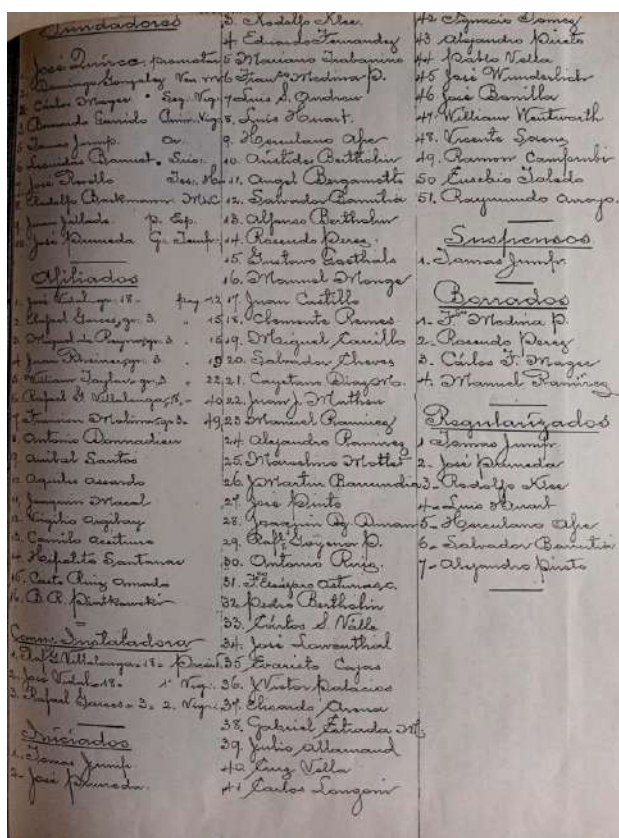 Fundadores
1. José Quirce. promotor
2. Domingo Gonzalez Ven
3. Cárlos Mager Seg. Vig.
Bernardo Garrido Prim. Vig.
5 Tomas Or.
6 Leonidas Srio.
7 José Tes.
8 Rodolfo Backmann
9 Juan p. Esp.
10. José Pruneda G. Temp.
Afiliados
1. José Vidal gr. 18-
2 Rafael Garces, gr. 3. " 15
3 Miguel de gr. 3 " 15
4 Juan Rheiner, gr. 3. " 19
5 William Taylor, gr. 3 " 22
6 Rafael G Villalonga, 18. - 40
7 Francisco Molina gr 3- 49
8 Antonio Donnadieu
9 Anibal Santos
10 Aquiles Assardo
11 Joaquin Macal
12 Virgilio
13. Camilo Aceituno
14. Hipolito Santanas
15. Casto Ruiz Amado
16. B. A. Piatkowski
Com. Instaladora
1. Raf. G Villalonga- 18-
2. José Vidal- 18- 1° Vig.
3. Rafael Garces- 3- 2. Vig.
Iniciados
1. Tomas
2- José Pruneda.
3. Rodolfo Klee.
4. Eduardo Fernandez
5 Mariano Trabanino
6 Medina P.
7 Luis S. Andreu
8. Luis Huart.
9. Herculano Afre
10. Aristides Bertholin
11. Angel Bergamotto
12. Salvador
13. Alfonso Bertholin
14. Rosendo Perez.
15. Gustavo Gosthals
16. Manuel Monge
17 Juan Castillo
18. Clemente
19. Miguel Carrillo
20. Salvador Cheves
21. Cayetano Diaz M.
22. Juan J. Matheu
23 Manuel Ramirez
24. Alejandro Ramirez
25. Marcelino Mottet
26. Martin Barrundia
27. José Pinto
28. Joaquin Duran
29. Raf. Goyena P.
30. Antonio Ruiz.
31. Eleázaro Asturias C.
32 Pedro Bertholin
33. Cárlos S. Valle
34. José Lowenthal
35 Evaristo Cajas
36. Victor Palacios
37. Elisardo Arana
38. Gabriel Estrada M
39. Julio Allamand
40 Cruz Vella
41 Carlos Longoni
42 Ignacio Gomez
43 Alejandro Prieto
44 Pablo Vella
45 José Wunderlich
46 José Bonilla
47. William Wentworth
48. Vicente Saenz
49. Ramon
50 Eusebio Toledo
51. Raymundo Arroyo.
Suspensos
1. Tomas
Borrados
1- Medina P.
2- Rosendo Perez
3. Cárlos F. Mager
4. Manuel Ramirez
Regularizados
1 Tomas
2- José Pruneda
3- Rodolfo Klee
4- Luis Huart
5- Herculano Afre
6- Salvador
7- Alejandro Prieto